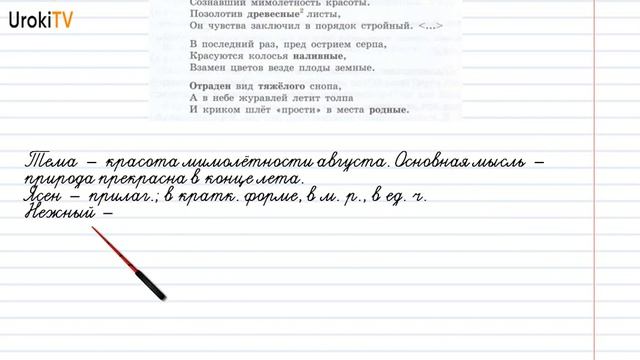 UrokiTV
Сознавший мимолётность красоты.
Позолотив древесные² листы,
Он чувства заключил в порядок стройный. <...>
В последний раз, пред острием серпа,
Красуются колосья наливные,
Взамен цветов везде плоды земные.
Отраден вид тяжёлого снопа,
А в небе журавлей летит толпа
И криком шлёт «прости» в места родные.
Тема – красота мимолётности августа. Основная мысль –
природа прекрасна в конце лета.
Ясен – прилаг.; в кратк. форме, в м. р., в ед. ч.
Нежный –